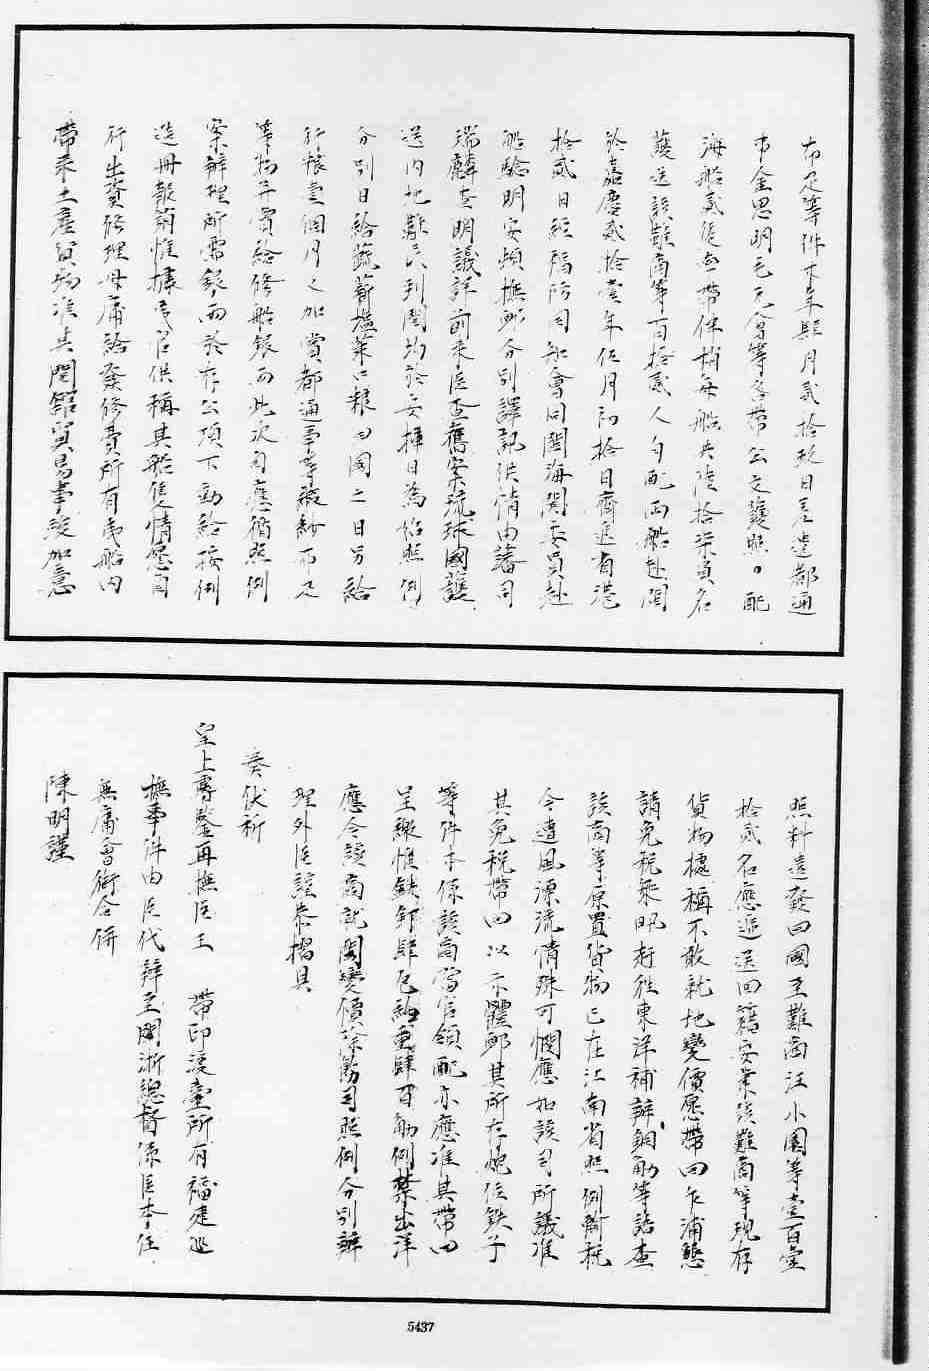 布疋等件本年肆月貳拾玖日具遣都通
事金思明毛元會等各帶公文護照配
海船貳隻並帶伴梢每船共陸拾柒員名
護送該難商等百拾貳人勻配兩船赴閩
於嘉慶貳拾壹年伍月初拾日齊進省港
拾貳日經福防同知會同閩海關委員赴
船驗明安頓撫卹分別譯訊供情由藩司
瑞麟查明議詳前來臣查舊案琉球國護
送內地難民到閩均於安揷日為始照例
分別日給蔬薪塩菜口粮回國之日另給
行粮壹個月又加賞都通事等緞紗布疋
等物并賞給修船銀兩此次自應循照例
案辦理所需銀兩於存公項下動給按例
造冊報銷惟據夷官供稱其船隻情愿自
行出資修理毋庸給發修費所有夷船內
帶來土產貨物准其開館貿易事竣加意
照料遣發回國至難商汪小園等壹百壹
拾貳名應遞送回籍安業該難商等現存
貨物據稱不敢就地變價愿帶回乍浦懇
請免稅乘汛赶往東洋補辦銅觔等語查
該商等原置貨物已在江南省照例輸稅
今遭風漂流情殊可憫應如該司所議准
其免稅帶回以示體卹其所存炮位鉄子
等件本係該商當官領配亦應准其帶回
呈繳惟鉄卸肆包約重肆百觔例禁出洋
應令該商就閩變價除飭司照例分別辦
理外臣謹恭摺具
奏伏祈
皇上專鑒再撫臣王 帶印渡臺所有福建巡
撫事件由臣代辦至閩浙總督係臣本任
無庸會銜合併
陳明謹
5437